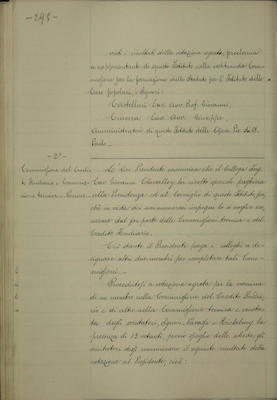 -295-
visti i risultati della votazione segreta, proclama
a rappresentanti di questo Istituto nella costituenda Com-
missione per la formazione dello Statuto per l'Istituto delle
Case popolari, i Signori:
Castellani Cav. Avv. Prof. Giovanni,
Cav. Avv. Giuseppe,
Amministratori di questo Istituto delle Opere Pie di S.
Paolo.
- 2° -
Commissione del Credito
Fondiario e Commissione
tecnica
Il Sig. Presidente annunzia che il Collega
Cav. Giovanni ha rivolto speciale preghiera
alla Presidenza ed al Consiglio di questo Istituto per-
chè in vista dei suoi numerosi impegni lo si voglia eso-
nerare dal far parte delle Commissioni tecnica e del
Credito Fondiario.
Ciò stante il Presidente prega i colleghi a de-
signare altri due membri per completare tali Com-
missioni.
Procedutosi a votazione segreta per la nomina
di un membro nella Commissione del Credito Fondia-
rio e di altro nella Commissione tecnica e consta-
tata dagli scrutatori, Signori e la
presenza di 13 votanti, previo spoglio delle schede, gli
scrutatori degli annunziano il seguente risultato della
votazione al Presidente, cioè: